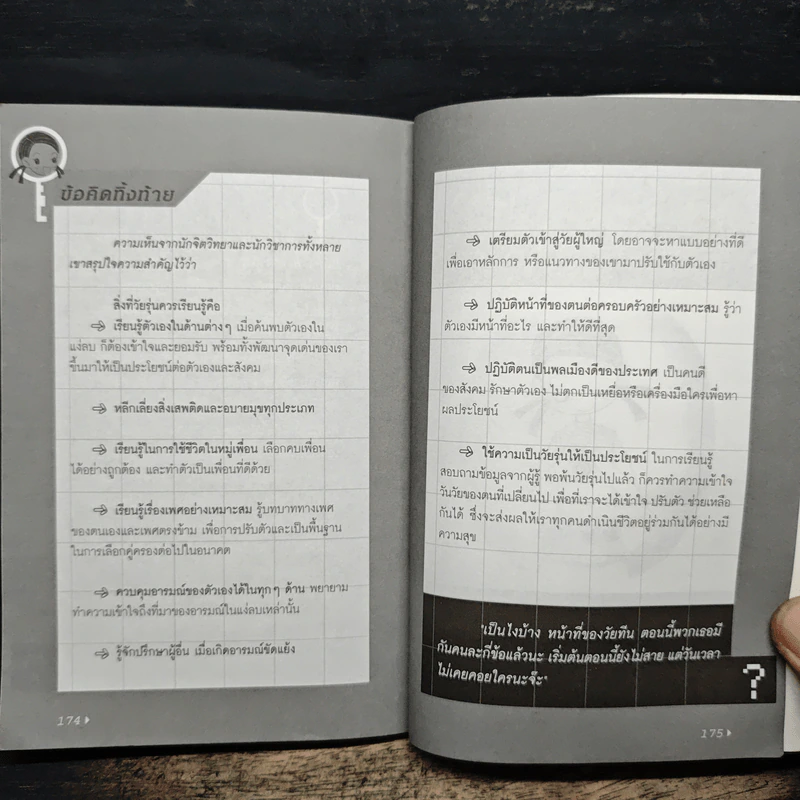 ข้อคิดทิ้งท้าย
ความเห็นจากนักจิตวิทยาและนักวิชาการทั้งหลาย
เขาสรุปใจความสำคัญไว้ว่า
สิ่งที่วัยรุ่นควรเรียนรู้คือ
⇨ เรียนรู้ตัวเองในด้านต่างๆ เมื่อค้นพบตัวเองใน
แง่ลบ ก็ต้องเข้าใจและยอมรับ พร้อมทั้งพัฒนาจุดเด่นของเรา
ขึ้นมาให้เป็นประโยชน์ต่อตัวเองและสังคม
⇨ หลีกเลี่ยงสิ่งเสพติดและอบายมุขทุกประเภท
⇨ เรียนรู้ในการใช้ชีวิตในหมู่เพื่อน เลือกคบเพื่อน
ได้อย่างถูกต้อง และทำตัวเป็นเพื่อนที่ดีด้วย
⇨ เรียนรู้เรื่องเพศอย่างเหมาะสม รู้บทบาททางเพศ
ของตนเองและเพศตรงข้าม เพื่อการปรับตัวและเป็นพื้นฐาน
ในการเลือกคู่ครองต่อไปในอนาคต
⇨ ควบคุมอารมณ์ของตัวเองได้ในทุกๆ ด้าน พยายาม
ทำความเข้าใจถึงที่มาของอารมณ์ในแง่ลบเหล่านั้น
⇨ รู้จักปรึกษาผู้อื่น เมื่อเกิดอารมณ์ขัดแย้ง
174
⇨ เตรียมตัวเข้าสู่วัยผู้ใหญ่ โดยอาจจะหาแบบอย่างที่ดี
เพื่อเอาหลักการ หรือแนวทางของเขามาปรับใช้กับตัวเอง
⇨ ปฏิบัติหน้าที่ของตนต่อครอบครัวอย่างเหมาะสม รู้ว่า
ตัวเองมีหน้าที่อะไร และทำให้ดีที่สุด
⇨ ปฏิบัติตนเป็นพลเมืองดีของประเทศ เป็นคนดี
ของสังคม รักษาตัวเอง ไม่ตกเป็นเหยื่อหรือเครื่องมือใครเพื่อหา
ผลประโยชน์
⇨ ใช้ความเป็นวัยรุ่นให้เป็นประโยชน์ ในการเรียนรู้
สอบถามข้อมูลจากผู้รู้ พอพ้นวัยรุ่นไปแล้ว ก็ควรทำความเข้าใจ
วันวัยของตนที่เปลี่ยนไป เพื่อที่เราจะได้เข้าใจ ปรับตัว ช่วยเหลือ
กันได้ ซึ่งจะส่งผลให้เราทุกคนดำเนินชีวิตอยู่ร่วมกันได้อย่างมี
ความสุข
"เป็นไงบ้าง หน้าที่ของวัยทีน ตอนนี้พวกเธอมี
กันคนละกี่ข้อแล้วนะ เริ่มต้นตอนนี้ยังไม่สาย แต่วันเวลา
ไม่เคยคอยใครนะจ๊ะ"
?
175